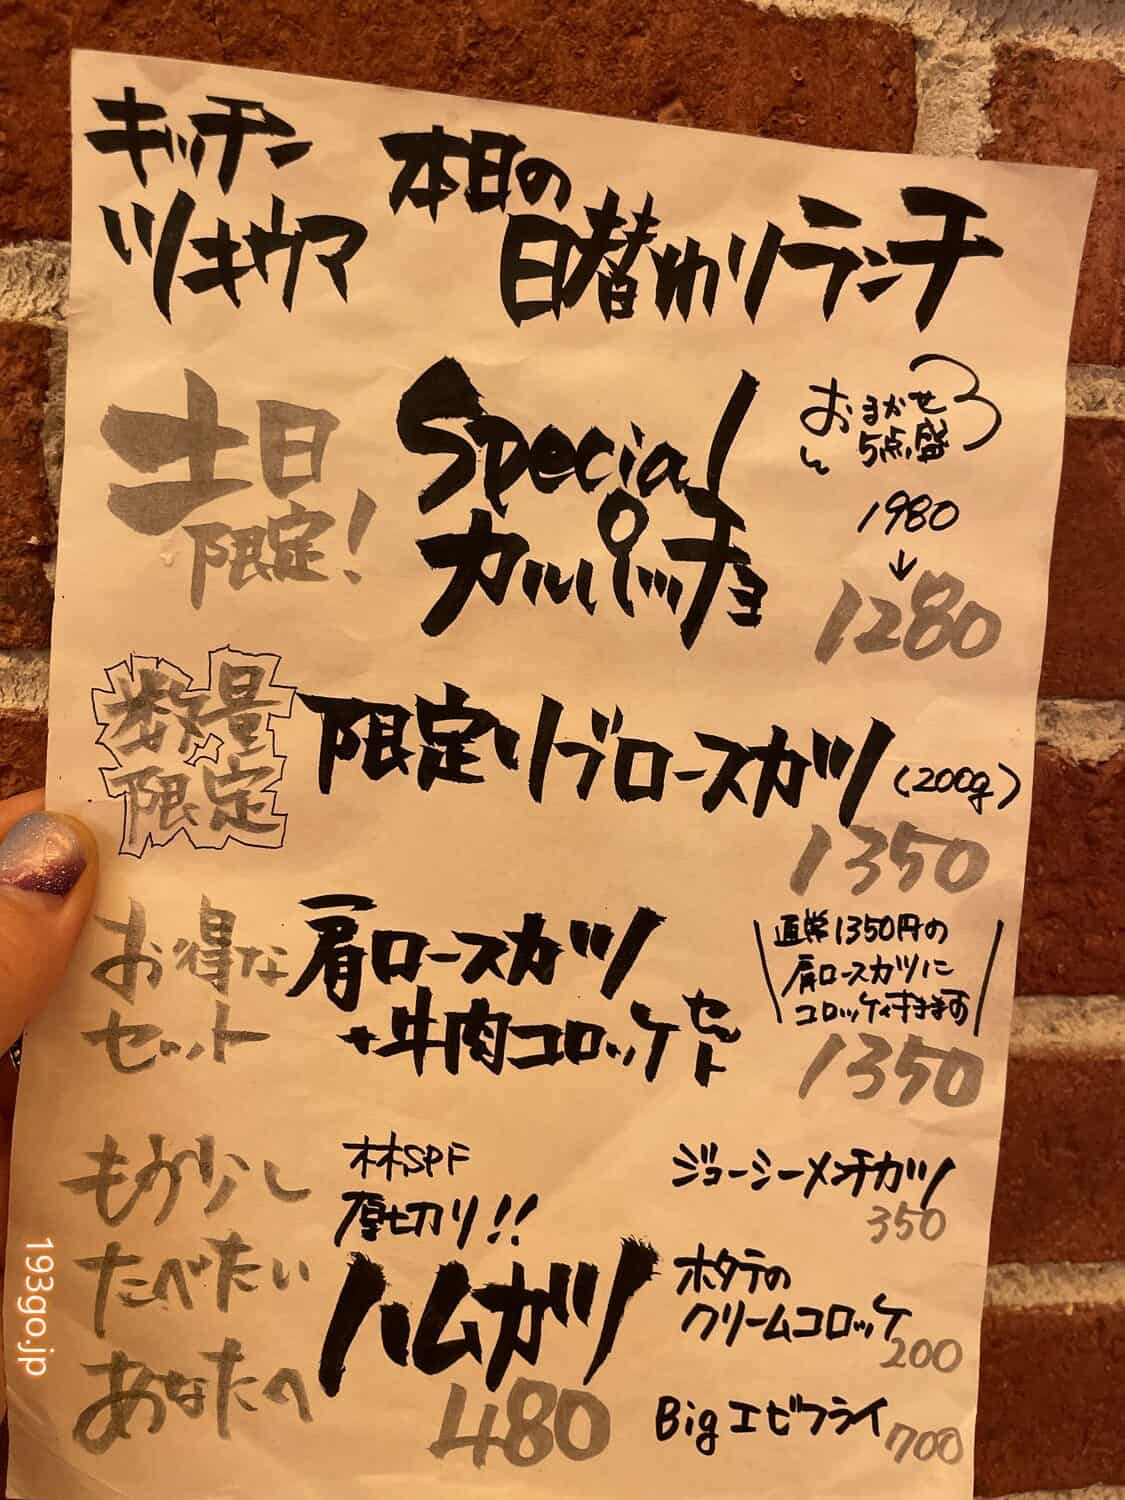 キッチン
ツキウマ
本日の
日替わりランチ
土日
限定!
Special
カルパッチョ
おまかせ
5点盛
1980
↓
1280
数量
限定
限定リブロースカツ(200g)
1350
お得な
セット
肩ロースカツ
+牛肉コロッケセット
直常1350円の
肩ロースカツに
コロッケ付きます
1350
もう少し
たべたい
あなたへ
林SPF
厚切り!!
ハムカツ
480
ジューシーメンチカツ
350
ホタテの
クリームコロッケ
200
Bigエビフライ
700
193go.jp